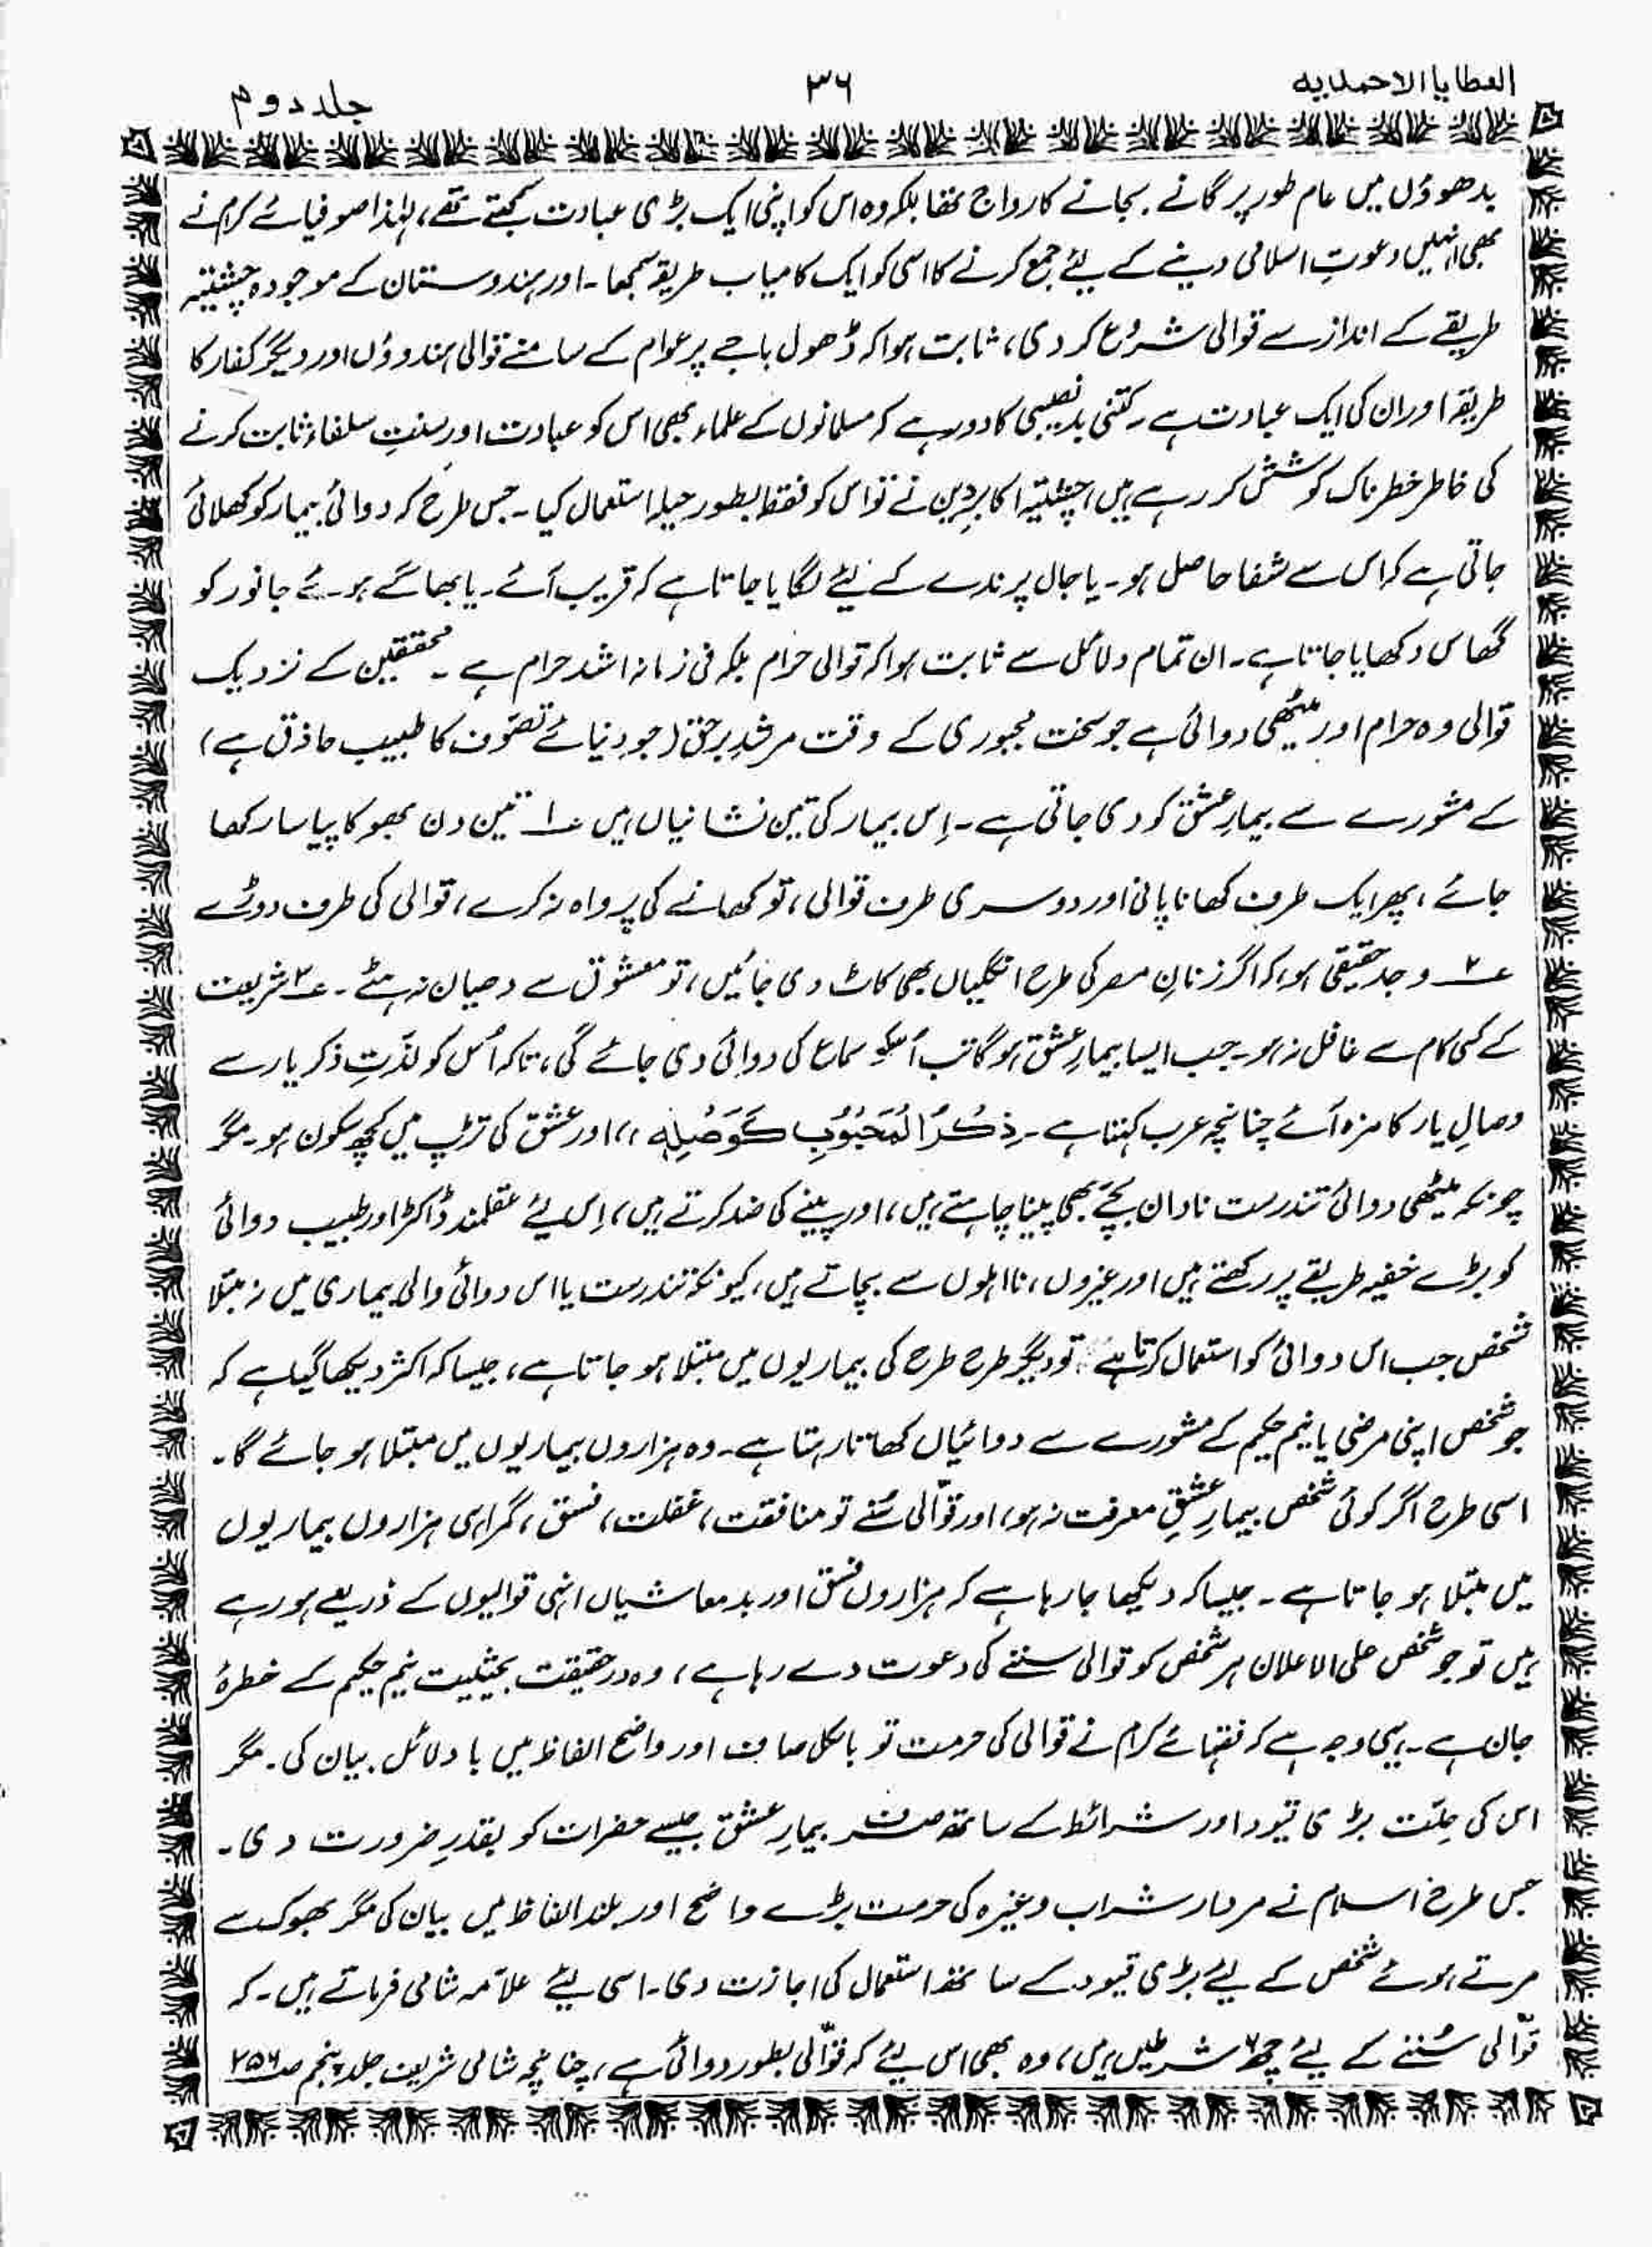 العطایا الاحمدیه
۳۶
جلد دوم
بدھوؤں میں عام طور پر گانے بجانے کا رواج تھا بلکہ وہ اس کو اپنی ایک بڑی عبادت سمجھتے تھے، لہٰذا صوفیائے کرام نے
بھی انہیں دعوتِ اسلامی دینے کے لیئے جمع کرنے کا اسی کو ایک کامیاب طریقہ سمجھا۔ اور ہندوستان کے موجودہ چشتیہ
طریقے کے انداز سے قوالی شروع کر دی، ثابت ہوا کہ ڈھول باجے پر عوام کے سامنے قوالی ہندوؤں اور دیگر کفار کا
طریقہ اور ان کی ایک عبادت ہے۔ کتنی بدنصیبی کا دور ہے کہ مسلمانوں کے علماء بھی اس کو عبادت اور سنتِ سلفاء ثابت کرنے
کی خاطر خطرناک کوشش کر رہے ہیں، چشتیہ اکابرِدین نے تو اس کو فقط بطور حیلہ استعمال کیا۔ جس طرح کہ دوائی بیمار کو کھلائی
جاتی ہے کہ اس سے شفا حاصل ہو۔ یا جال پرندے کے لیئے لگایا جاتا ہے کہ قریب آئے۔ یا بھاگے ہوئے جانور کو
گھاس دکھایا جاتا ہے۔ ان تمام دلائل سے ثابت ہوا کہ قوالی حرام بلکہ فی زمانہ اشد حرام ہے ۔ محققین کے نزدیک
قوالی وہ حرام اور میٹھی دوائی ہے جو سخت مجبوری کے وقت مرشدِ برحق (جو دنیائے تصوّف کا طبیب حاذق ہے)
کے مشورے سے بیمارِ عشق کو دی جاتی ہے۔ اِس بیمار کی تین نشانیاں ہیں ؏۱ تین دن بھوکا پیاسا رکھا
جائے، پھر ایک طرف کھانا پانی اور دوسری طرف قوالی، تو کھانے کی پرواہ نہ کرے، قوالی کی طرف دوڑے
؏۲ وجد حقیقی ہو، کہ اگر زنانِ مصر کی طرح انگلیاں بھی کاٹ دی جائیں، تو معشوق سے دھیان نہ ہٹے۔ ؏۳ شریعت
کے کسی کام سے غافل نہ ہو۔ جب ایسا بیمارِ عشق ہو گا تب اُسکو سماع کی دوائی دی جائے گی، تاکہ اُس کو لذّتِ ذکر یار سے
وصالِ یار کا مزہ آئے چنانچہ عرب کہتا ہے۔ ذِکْرُ الْمَحْبُوْبِ کَوَصْلِہٖ ،، اور عشق کی تڑپ میں کچھ سکون ہو۔ مگر
چونکہ میٹھی دوائی تندرست نادان بچے بھی پینا چاہتے ہیں، اور پینے کی ضد کرتے ہیں، اِس لیئے عقلمند ڈاکٹر اور طبیب دوائی
کو بڑے خفیہ طریقے پر رکھتے ہیں اور غیروں، نااہلوں سے بچاتے ہیں، کیونکہ تندرست یا اس دوائی والی بیماری میں نہ مبتلا
شخص جب اس دوائی کو استعمال کرتا ہے، تو دیگر طرح طرح کی بیماریوں میں مبتلا ہو جاتا ہے، جیسا کہ اکثر دیکھا گیا ہے کہ
جو شخص اپنی مرضی یا نیم حکیم کے مشورے سے دوائیاں کھاتا رہتا ہے۔ وہ ہزاروں بیماریوں میں مبتلا ہو جائے گا۔
اسی طرح اگر کوئی شخص بیمارِ عشقِ معرفت نہ ہو، اور قوّالی سُنے تو منافقت، غفلت، فسق، گمراہی ہزاروں بیماریوں
میں مبتلا ہو جاتا ہے۔ جیسا کہ دیکھا جا رہا ہے کہ ہزاروں فسق اور بدمعاشیاں انہی قوالیوں کے ذریعے ہو رہے
ہیں تو جو شخص علی الاعلان ہر شخص کو قوالی سننے کی دعوت دے رہا ہے، وہ درحقیقت بحیثیت نیم حکیم کے خطرۂ
جان ہے۔ یہی وجہ ہے کہ فقہائے کرام نے قوالی کی حرمت تو بالکل صاف اور واضح الفاظ میں با دلائل بیان کی۔ مگر
اس کی حِلّت بڑی قیود اور شرائط کے ساتھ صرف بیمارِ عشق جیسے حضرات کو بقدرِ ضرورت دی۔
جس طرح اسلام نے مردار شراب وغیرہ کی حرمت بڑے واضح اور بلند الفاظ میں بیان کی مگر بھوک سے
مرتے ہوئے شخص کے لیئے بڑی قیود کے ساتھ استعمال کی اجازت دی۔ اسی لیئے علاّمہ شامی فرماتے ہیں۔ کہ
قوّالی سُننے کے لیئے چھ۶ شرطیں ہیں، وہ بھی اس لیئے کہ قوّالی بطور دوائی ہے، چنانچہ شامی شریف جلد پنجم صـ۲۵۶